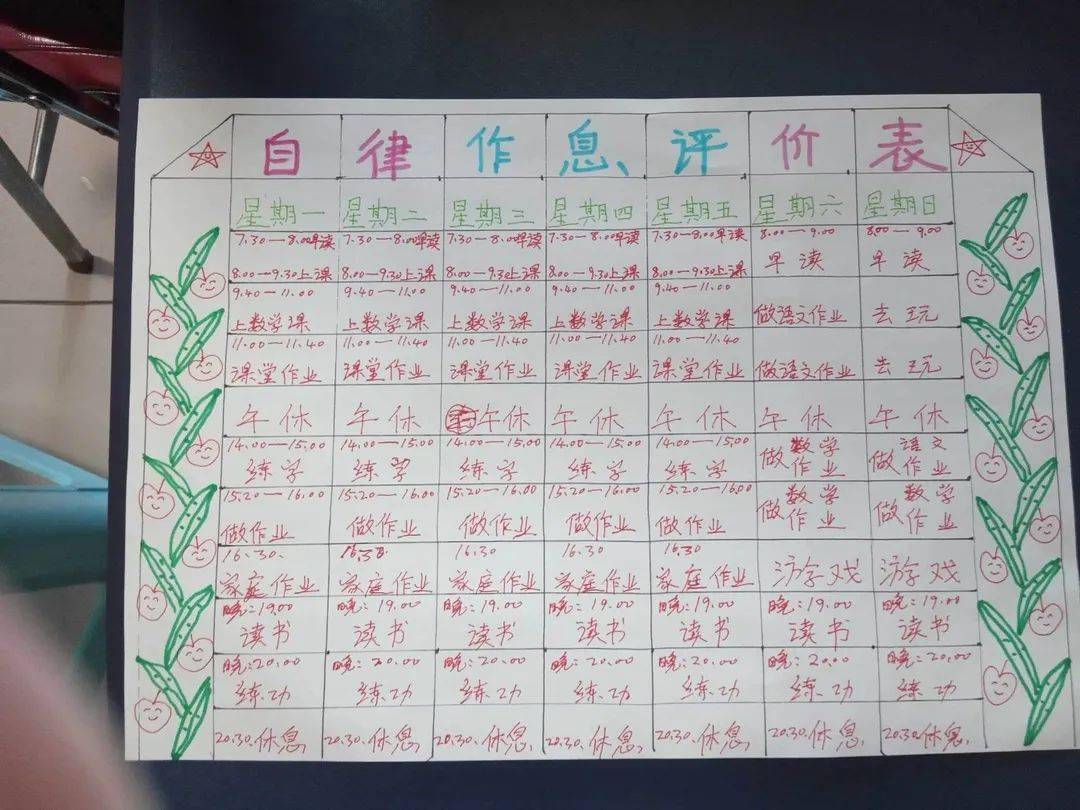 自律作息评价表
星期一 星期二 星期三 星期四 星期五 星期六 星期日
7.30—8.00早读 7.30—8.00早读 7.30—8.00早读 7.30—8.00早读 7.30—8.00早读 8.00—9.00 8.00—9.00
8.00—9.30上课 8.00—9.30上课 8.00—9.30上课 8.00—9.30上课 8.00—9.30上课 早读 早读
9.40—11.00 9.40—11.00 9.40—11.00 9.40—11.00 9.40—11.00
上数学课 上数学课 上数学课 上数学课 上数学课 做语文作业 去玩
11.00—11.40 11.00—11.40 11.00—11.40 11.00—11.40 11.00—11.40
课堂作业 课堂作业 课堂作业 课堂作业 课堂作业 做语文作业 去玩
午休 午休 午休 午休 午休 午休 午休
14.00—15.00 14.00—15.00 14.00—15.00 14.00—15.00 14.00—15.00 做数学作业 做语文作业
练字 练字 练字 练字 练字
15.20—16.00 15.20—16.00 15.20—16.00 15.20—16.00 15.20—16.00 做数学作业 做数学作业
做作业 做作业 做作业 做作业 做作业
16.30. 16.30 16.30 16.30 16.30
家庭作业 家庭作业 家庭作业 家庭作业 家庭作业 游戏 游戏
晚:19.00 晚:19.00 晚:19.00 晚:19.00 晚:19.00 晚:19.00 晚:19.00
读书 读书 读书 读书 读书 读书 读书
晚:20.00 晚:20.00 晚:20.00 晚:20.00 晚:20.00 晚:20.00 晚:20.00
练功 练功 练功 练功 练功 练功 练功
20.30.休息 20.30.休息 20.30.休息 20.30.休息 20.30.休息 20.30.休息 20.30.休息